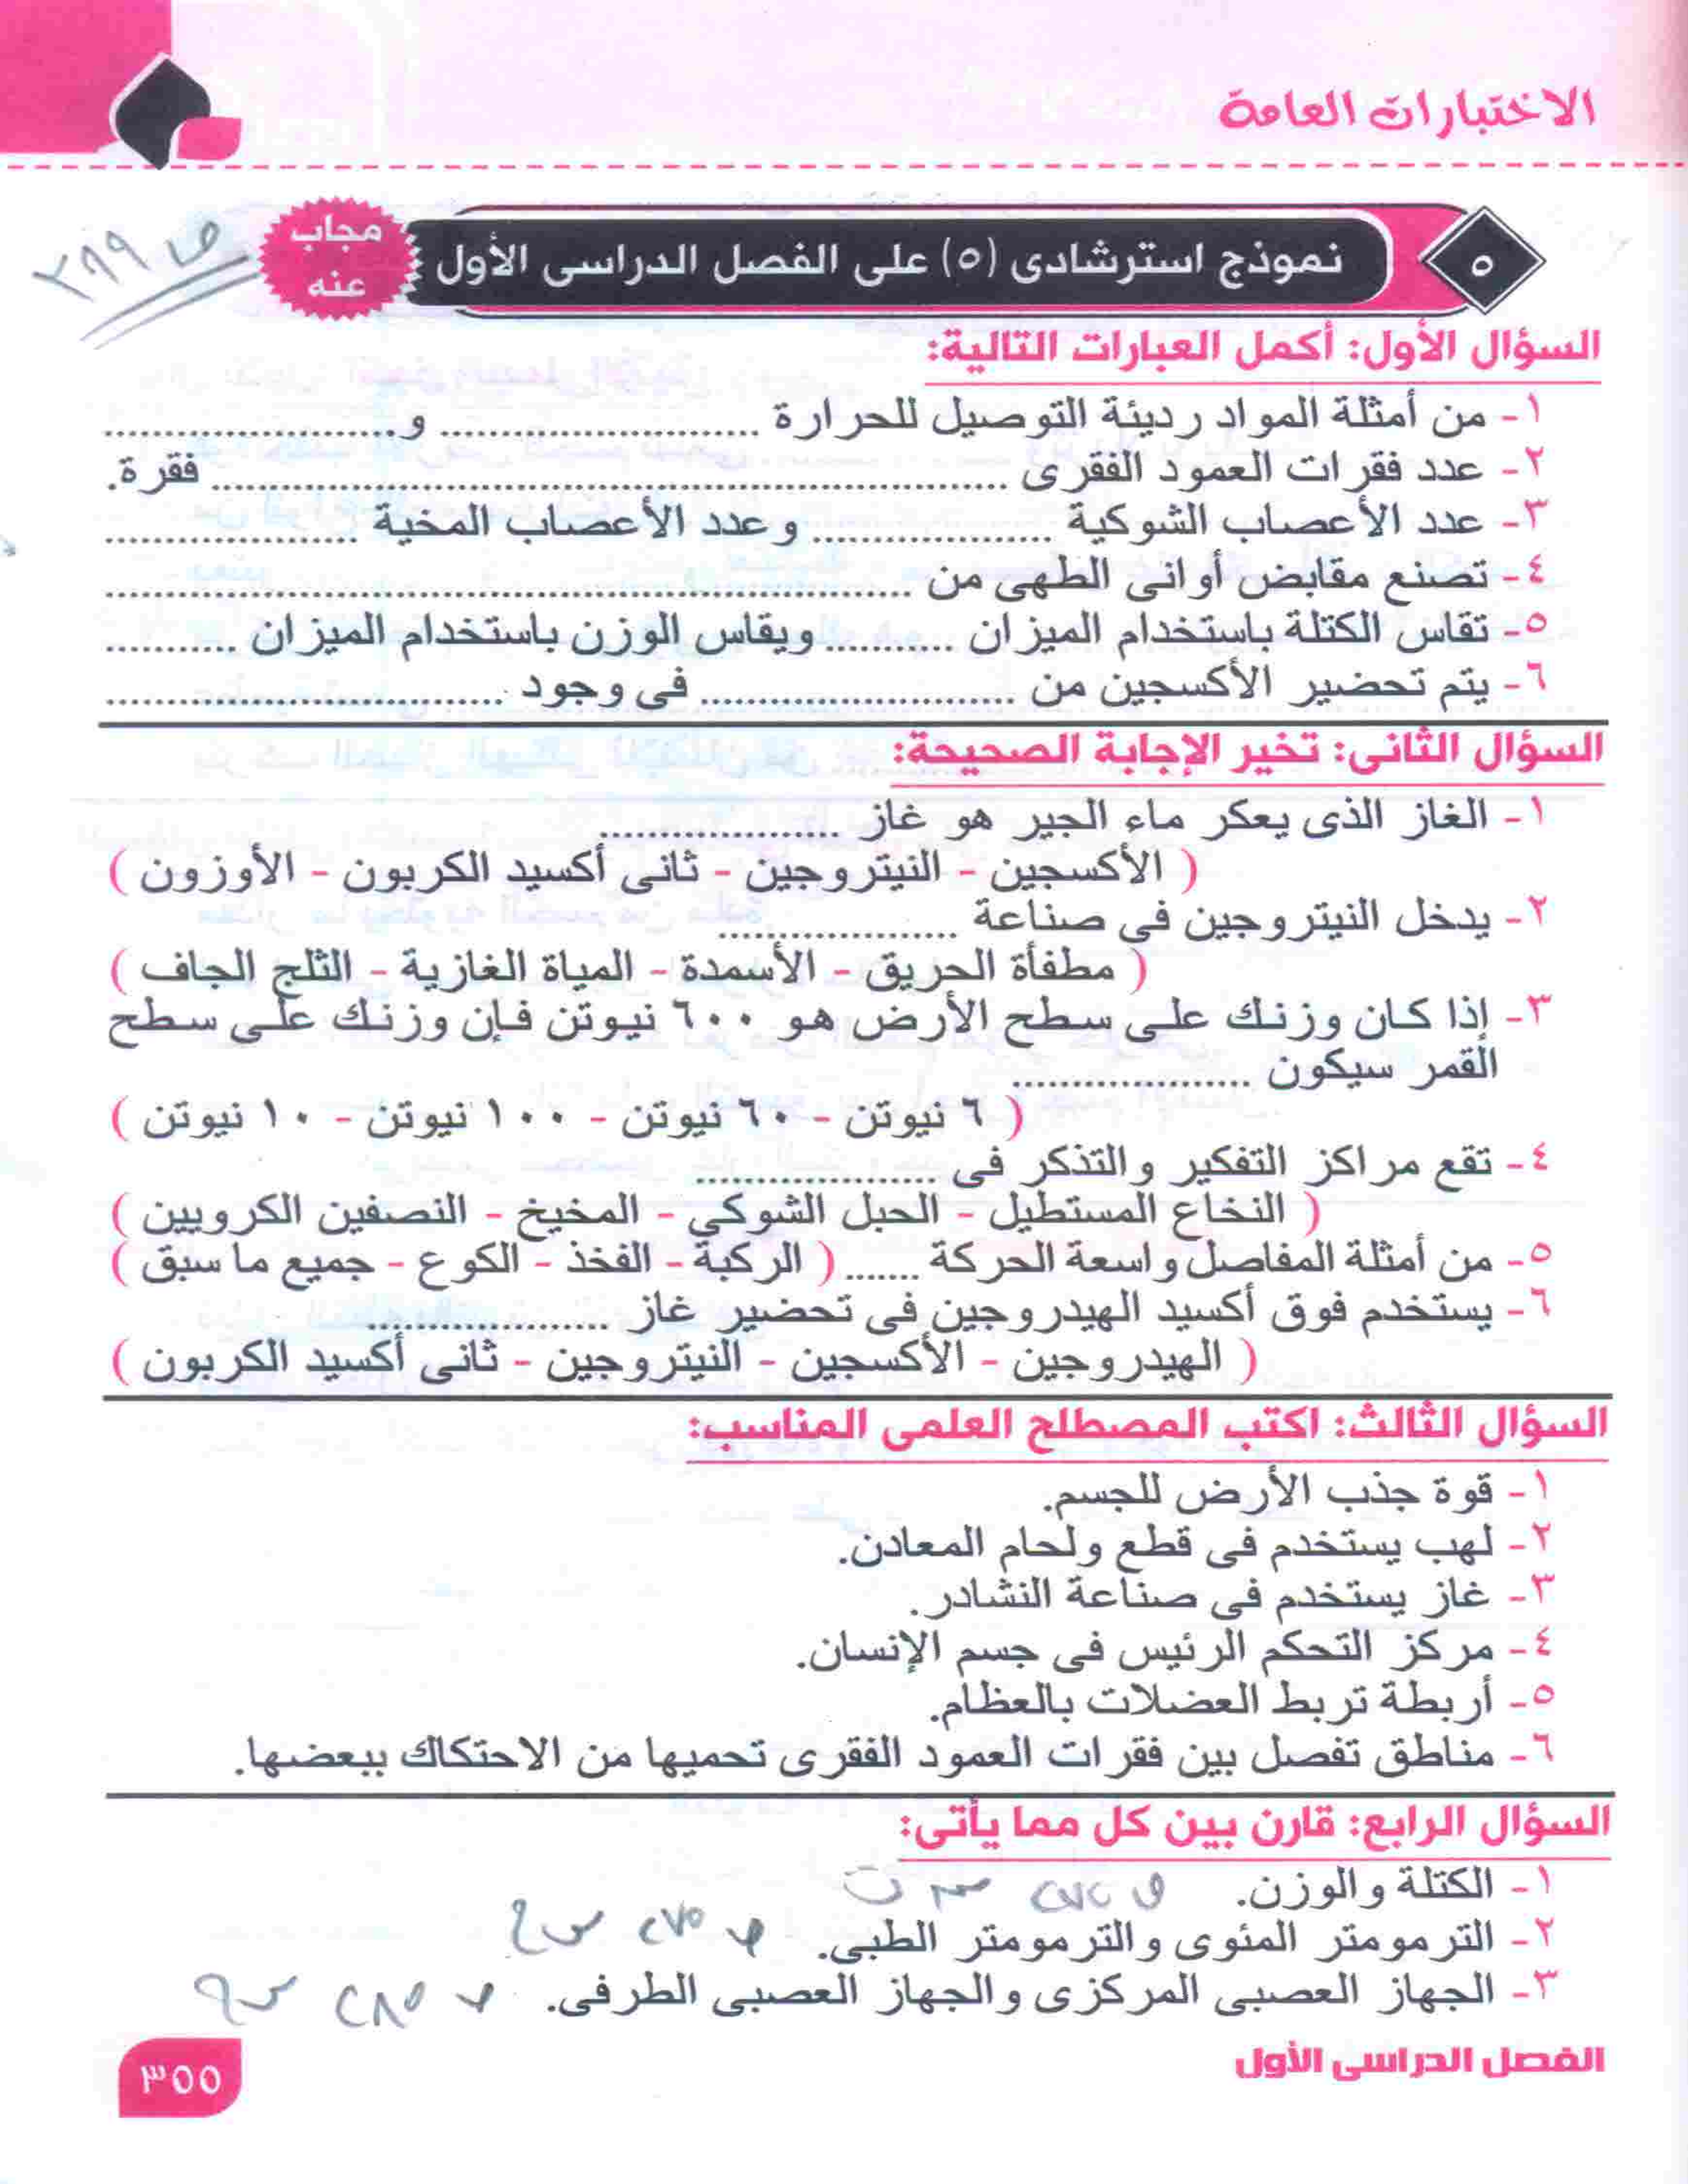 الاختبارات العامة
٥
نموذج استرشادى (٥) على الفصل الدراسى الأول
مجاب
عنه
ص ٣٩٩
السؤال الأول: أكمل العبارات التالية:
١- من أمثلة المواد رديئة التوصيل للحرارة .......................... و........................
٢- عدد فقرات العمود الفقرى ................................................................ فقرة.
٣- عدد الأعصاب الشوكية .................... وعدد الأعصاب المخية .....................
٤- تصنع مقابض أوانى الطهى من ..................................................................
٥- تقاس الكتلة باستخدام الميزان ........... ويقاس الوزن باستخدام الميزان ...........
٦- يتم تحضير الأكسجين من .......................... فى وجود ................................
السؤال الثانى: تخير الإجابة الصحيحة:
١- الغاز الذى يعكر ماء الجير هو غاز ....................
( الأكسجين - النيتروجين - ثانى أكسيد الكربون - الأوزون )
٢- يدخل النيتروجين فى صناعة ....................
( مطفأة الحريق - الأسمدة - المياة الغازية - الثلج الجاف )
٣- إذا كان وزنك على سطح الأرض هو ٦٠٠ نيوتن فإن وزنك على سطح
القمر سيكون ....................
( ٦ نيوتن - ٦٠ نيوتن - ١٠٠ نيوتن - ١٠ نيوتن )
٤- تقع مراكز التفكير والتذكر فى ....................
( النخاع المستطيل - الحبل الشوكي - المخيخ - النصفين الكرويين )
٥- من أمثلة المفاصل واسعة الحركة ....... ( الركبة - الفخذ - الكوع - جميع ما سبق )
٦- يستخدم فوق أكسيد الهيدروجين فى تحضير غاز ....................
( الهيدروجين - الأكسجين - النيتروجين - ثانى أكسيد الكربون )
السؤال الثالث: اكتب المصطلح العلمى المناسب:
١- قوة جذب الأرض للجسم.
٢- لهب يستخدم فى قطع ولحام المعادن.
٣- غاز يستخدم فى صناعة النشادر.
٤- مركز التحكم الرئيس فى جسم الإنسان.
٥- أربطة تربط العضلات بالعظام.
٦- مناطق تفصل بين فقرات العمود الفقرى تحميها من الاحتكاك ببعضها.
السؤال الرابع: قارن بين كل مما يأتى:
١- الكتلة والوزن.
٢- الترمومتر المئوى والترمومتر الطبى.
٣- الجهاز العصبى المركزى والجهاز العصبى الطرفى.
الفصل الدراسى الأول
٣٥٥